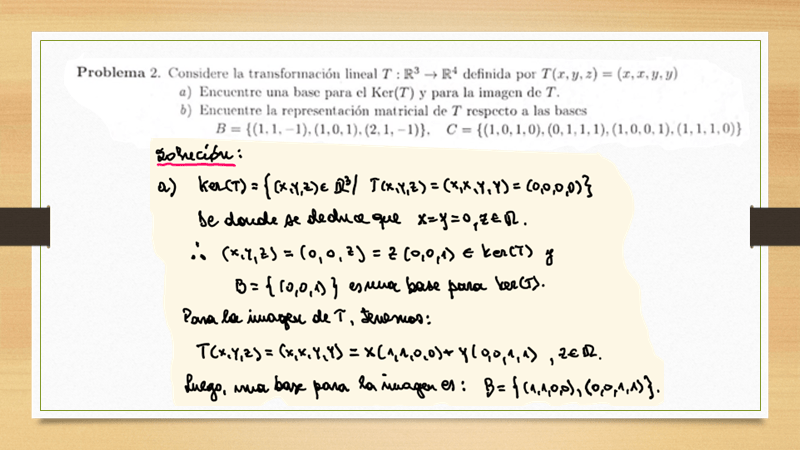 Problema 2. Considere la transformación lineal T : ℝ³ → ℝ⁴ definida por T(x, y, z) = (x, x, y, y)
a) Encuentre una base para el Ker(T) y para la imagen de T.
b) Encuentre la representación matricial de T respecto a las bases
B = {(1, 1, −1), (1, 0, 1), (2, 1, −1)}, C = {(1, 0, 1, 0), (0, 1, 1, 1), (1, 0, 0, 1), (1, 1, 1, 0)}
Solución:
a) Ker(T) = {(x,y,z) ∈ ℝ³/ T(x,y,z) = (x,x,y,y) = (0,0,0,0)}
De donde se deduce que x=y=0, z∈ℝ.
∴ (x,y,z) = (0,0,z) = z(0,0,1) ∈ Ker(T) y
B = {(0,0,1)} es una base para Ker(T).
Para la imagen de T, tenemos:
T(x,y,z) = (x,x,y,y) = x(1,1,0,0)+ y(0,0,1,1) , z∈ℝ.
Luego, una base para la imagen es: B = {(1,1,0,0),(0,0,1,1)}.